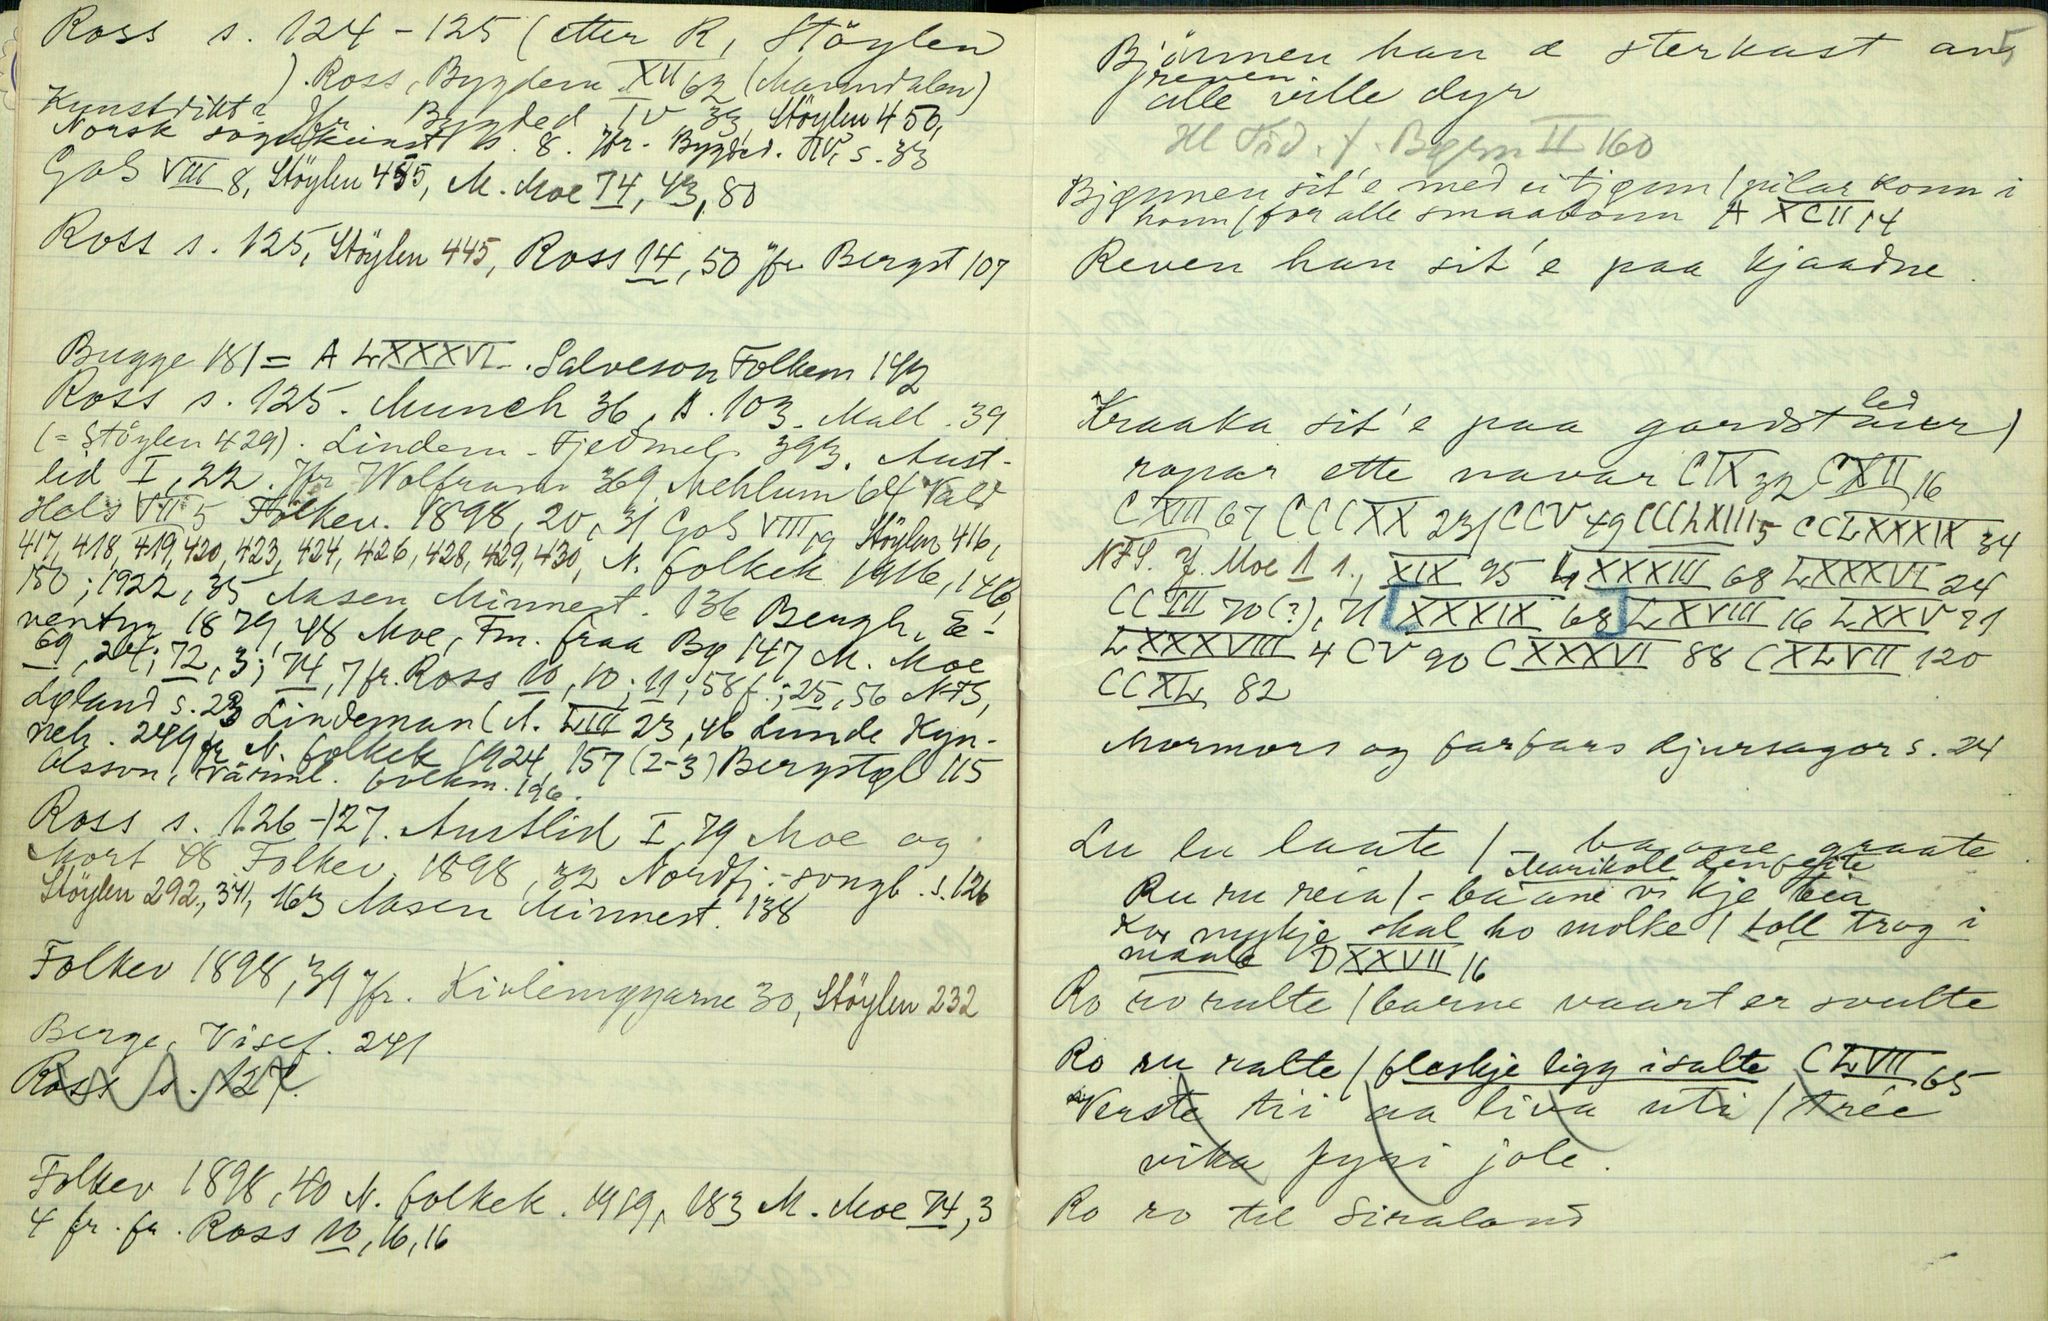 Ross s. 124-125 (etter R, Störylen
). Ross, Bygdem XII 62 (Manndalen)
Kunstdikt? Jfr Bygded IV 33, Störylen 450,
Norsk sogukunst s. 8. Jfr. Bygded. IV, s. 33
GoS VIII 8, Störylen 455, M. Moe 74, 43, 80
Ross s. 125, Störylen 445, Ross 14, 50 jfr Bergst 107
Bugge 181 = A LXXXVI. Salveson Folkem 142
Ross s. 125. Munch 36, s. 103. Mall. 39
(= Störylen 429). Lindem. Fjeldmel. 393. Aust-
lid I, 22. Jfr Wolfram 369 Mehlum 64 Vald
Hels VII 5 Folkev. 1898, 20, 31 GoS VIII 19 Störylen 416,
417, 418, 419, 420, 423, 424, 426, 428, 429, 430, N. folkek 1916, 146,
150; 1922, 35 Aasen Minnest. 136 Bergh. E-
ventyr 1879, 48 Moe, Fm. fraa Bg 147 M. Moe
69, 24; 72, 3; 74, 7 fr. Ross 10, 10; 11, 58 f.; 25, 56 NFS,
Ligland s. 23 Lindeman (A. LIII 23, 46 Lunde Kyn-
neh. 249 fr N. folkek 1924, 157 (2-3) Bergstgl 115
Olsson, Värml. folkm. 196.
Ross s. 126-127. Austlid I 79 Moe og
Mort 48 Folkev 1898, 32 Nordfj.-songl. s. 126
Störylen 292, 341, 163 Aasen Minnest. 138
Folkev 1898, 39 jfr. Kivlemøyarne 30, Störylen 232
Berge, Visef. 241
Ross s. 127.
Folkev 1898, 40 N. folkek. 1919, 183 M. Moe 74, 3
4 fr. fr. Ross 10, 16, 16
5
Bjørnen han æ sterkast av
reven
alle ville dyr
Hl Tid. f. Bgem II 160
Bjønnen sit'e med ei tjønn / pilar konn i
honn / for alle smaabonn A XCII 14
Reven han sit'e paa kjaadne.
led
Kraaka sit'e paa gardstauer /
ropar ette navar CIX 32 CXII 16
CXIII 67 CCCXX 231 CCV 49 CCCLXIII 5 CCLXXXIX 34
NFS. Y. Moe 1 1., XIX 95 LXXXIII 68 LXXXVI 24
CCIII 70 (?), 71 [XXXIX 68] LXVIII 16 LXXV 21
LXXXVIII 4 CV 90 CXXXVI 88 CXLVII 120
CCXL 82
Mormors og farfars djursagor s. 24
Lu lu laate / - baane graate
Marikoll den feite
Ru ru reia / - baane vi kje beia
Kor mykje skal ho molke / toll trog i
maale DXXVII 16
Ro ro rulte / barne vaart er svulte
Ro ru ralte / fleskje ligg i salte CLVII 65
Verste tii aa liva uti / træe
vika fyri jole.
Ro ro til Siraland